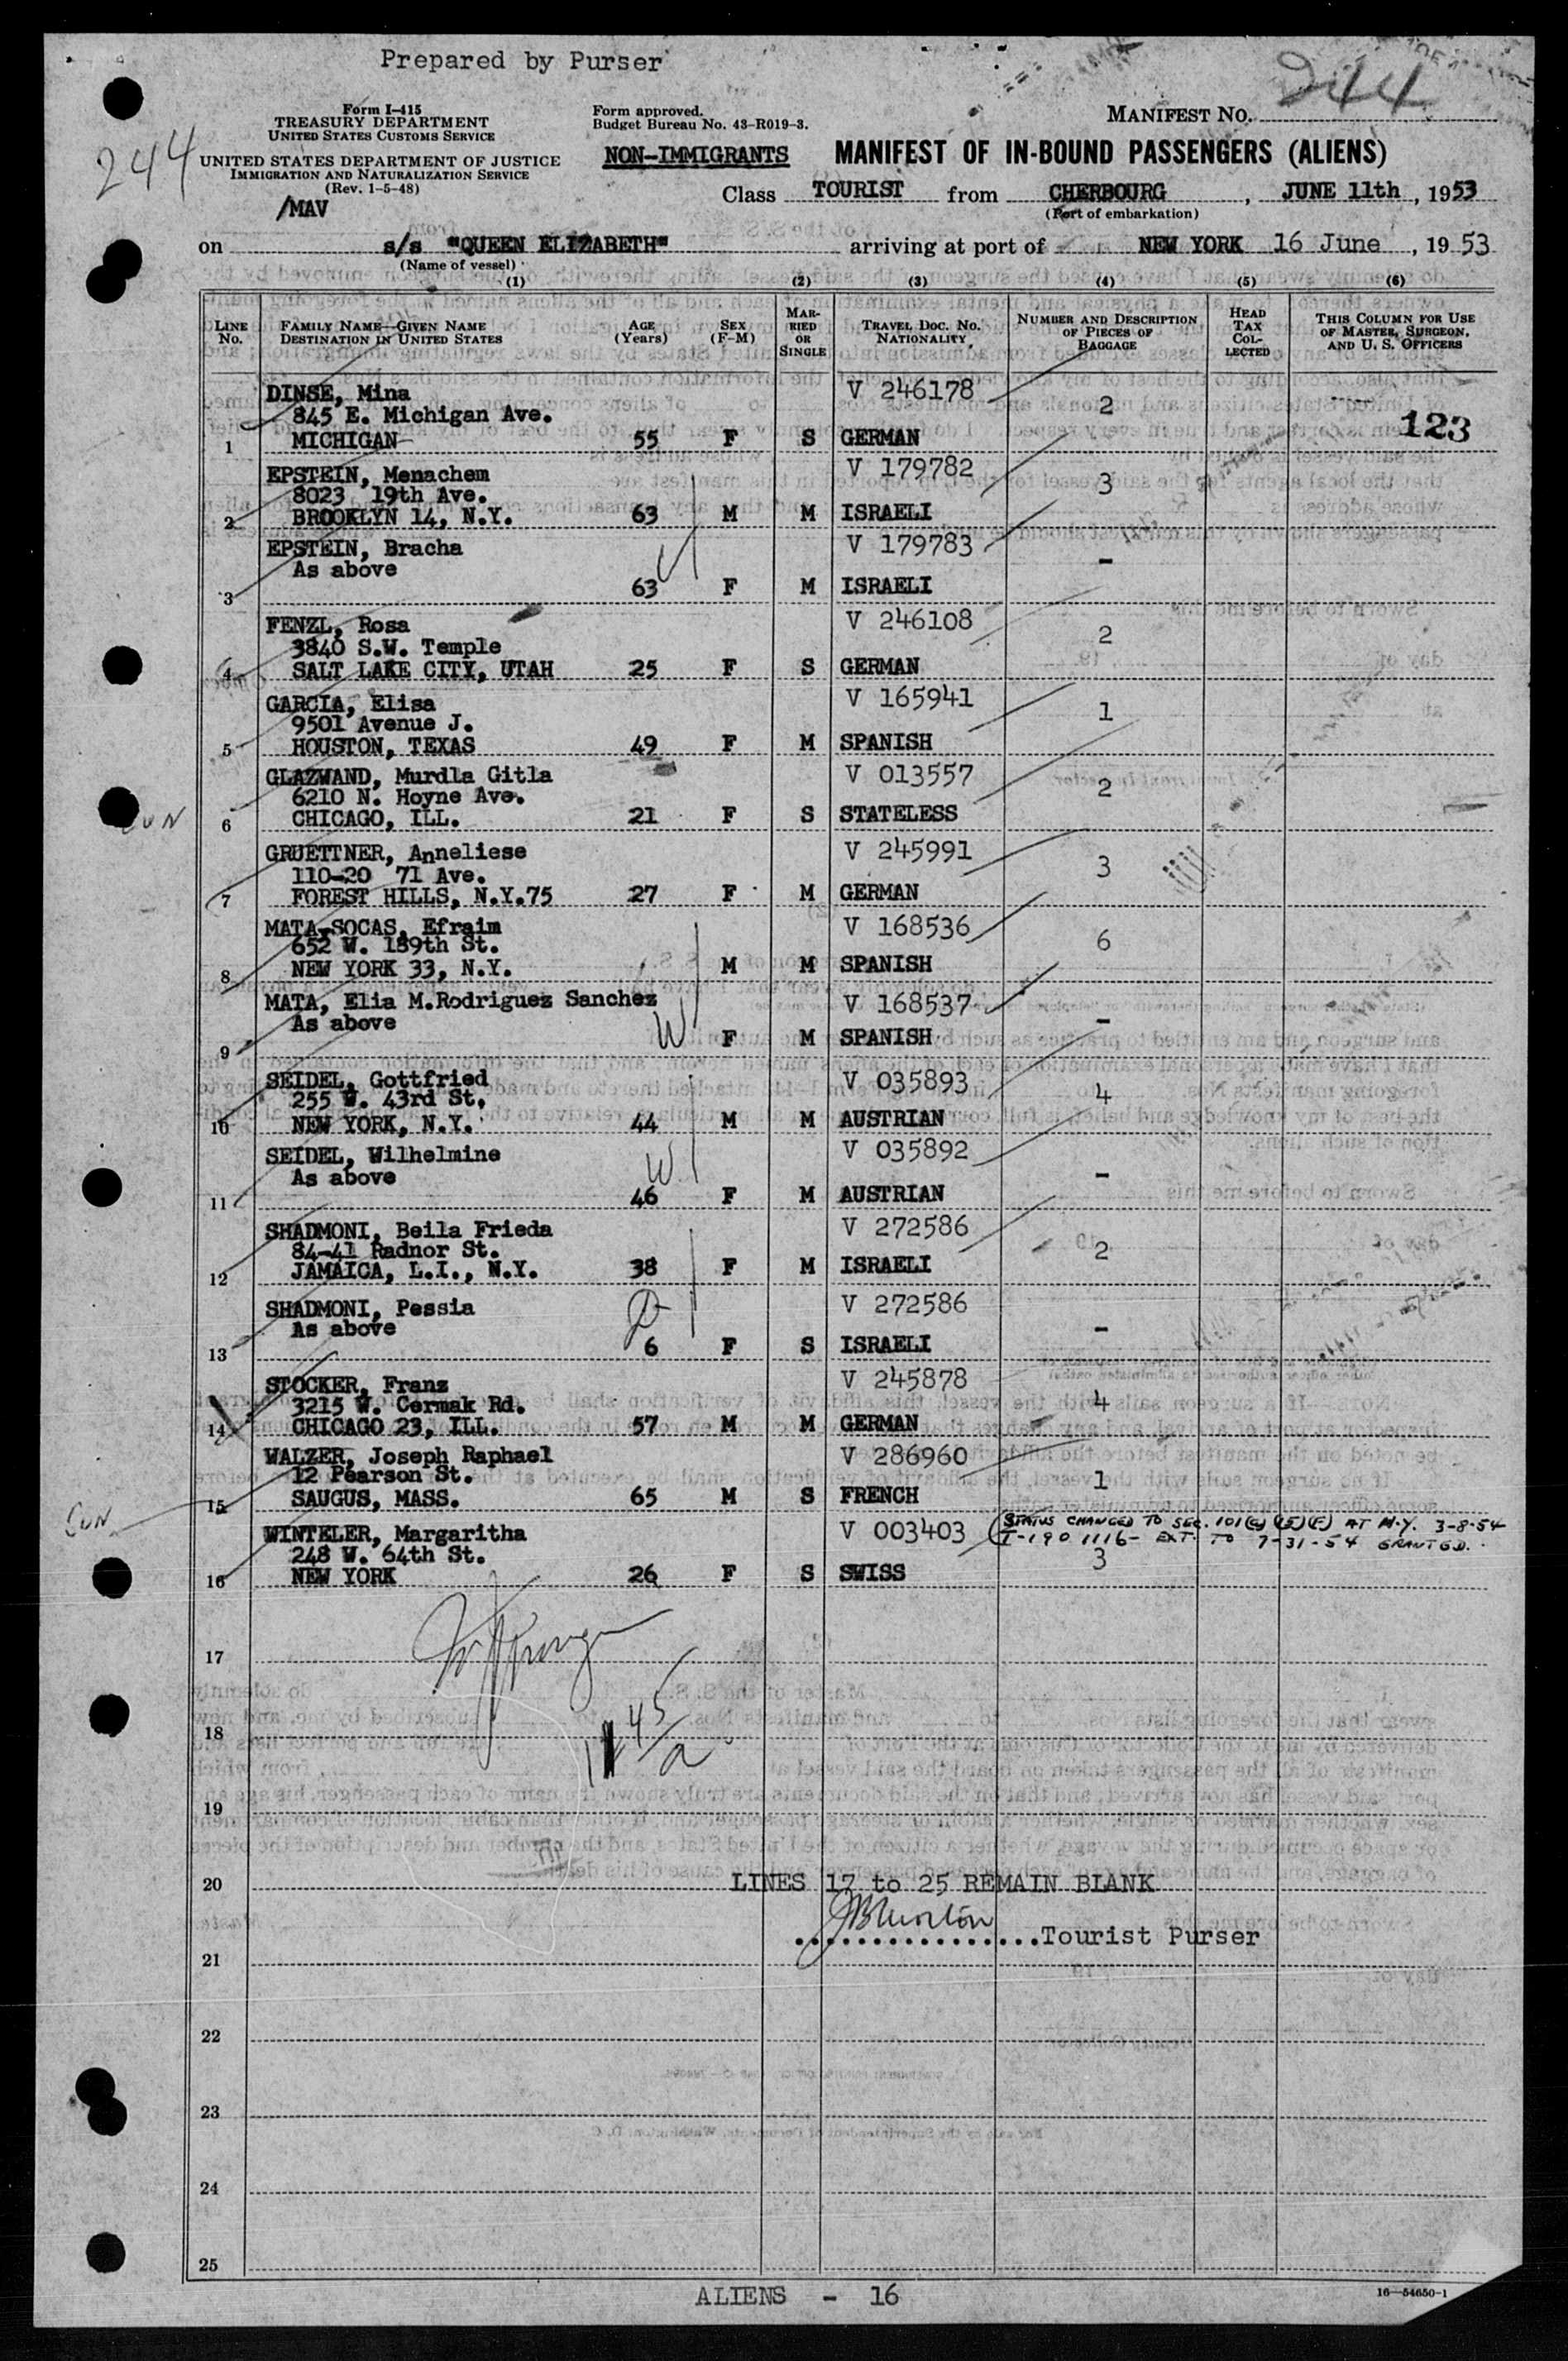 Prepared by Purser
244
Form I-415
TREASURY DEPARTMENT
UNITED STATES CUSTOMS SERVICE
Form approved.
Budget Bureau No. 43-R019-3.
MANIFEST NO. 244
244
UNITED STATES DEPARTMENT OF JUSTICE
IMMIGRATION AND NATURALIZATION SERVICE
(Rev. 1-5-48)
/MAV
NON-IMMIGRANTS MANIFEST OF IN-BOUND PASSENGERS (ALIENS)
Class TOURIST from CHERBOURG, JUNE 11th, 1953
(Port of embarkation)
on s/s "QUEEN ELIZABETH" arriving at port of NEW YORK 16 June, 1953
(Name of vessel)
(1) (2) (3) (4) (5) (6)
LINE No. FAMILY NAME—GIVEN NAME DESTINATION IN UNITED STATES AGE (Years) SEX (F-M) MARRIED OR SINGLE TRAVEL DOC. NO. NATIONALITY NUMBER AND DESCRIPTION OF PIECES OF BAGGAGE HEAD TAX COLLECTED THIS COLUMN FOR USE OF MASTER, SURGEON, AND U. S. OFFICERS
DINSE, Mina V 246178 2
845 E. Michigan Ave. 123
1 MICHIGAN 55 F S GERMAN
EPSTEIN, Menachem V 179782 3
8023 19th Ave.
2 BROOKLYN 14, N.Y. 63 M M ISRAELI
EPSTEIN, Bracha V 179783 -
As above
3 63 F M ISRAELI
FENZL, Rosa V 246108 2
3840 S.W. Temple
4 SALT LAKE CITY, UTAH 25 F S GERMAN
GARCIA, Elisa V 165941 1
9501 Avenue J.
5 HOUSTON, TEXAS 49 F M SPANISH
GLAZWAND, Murdla Gitla V 013557 2
6210 N. Hoyne Ave.
6 CHICAGO, ILL. 21 F S STATELESS
GRUETTNER, Anneliese V 245991 3
110-20 71 Ave.
7 FOREST HILLS, N.Y.75 27 F M GERMAN
MATA-SOCAS, Efraim V 168536 6
652 W. 189th St.
8 NEW YORK 33, N.Y. M M SPANISH
MATA, Elia M.Rodriguez Sanchez V 168537 -
As above
9 W F M SPANISH
SEIDEL, Gottfried V 035893 4
255 W. 43rd St.
10 NEW YORK, N.Y. 44 M M AUSTRIAN
SEIDEL, Wilhelmine V 035892 -
As above W
11 46 F M AUSTRIAN
SHADMONI, Beila Frieda V 272586 2
84-41 Radnor St.
12 JAMAICA, L.I., N.Y. 38 F M ISRAELI
SHADMONI, Pessia V 272586 -
As above D
13 6 F S ISRAELI
STOCKER, Franz V 245878 4
3215 W. Cermak Rd.
14 CHICAGO 23, ILL. 57 M M GERMAN
WALZER, Joseph Raphael V 286960 1
12 Pearson St.
15 SAUGUS, MASS. 65 M S FRENCH
WINTELER, Margaritha V 003403 STATUS CHANGED TO SEC. 101(a)(15)(F) AT N.Y. 3-8-54
248 W. 64th St. I-190 1116- EXT. TO 7-31-54 GRANTED.
16 NEW YORK 26 F S SWISS 3
17
18
19
20 LINES 17 to 25 REMAIN BLANK
Tourist Purser
21
22
23
24
25
ALIENS - 16
16—54650-1